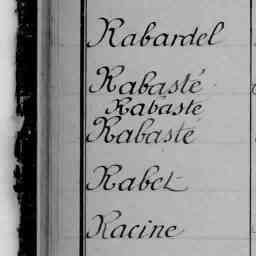 Rabardel
Rabasté
Rabasté
Rabasté
Rabet
Racine